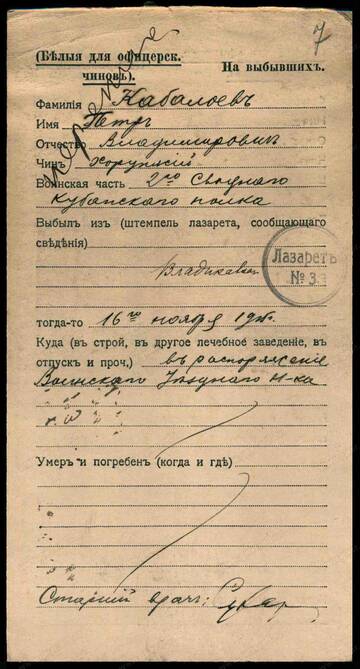 7
(Бѣлыя для офицерск. чиновъ).
На выбывшихъ.
Фамилія Кабалоевъ
Имя Петръ
Отчество Владимировичъ
Чинъ Хорунжій
Воинская часть 2го Своднаго
Кубанскаго полка
Выбылъ изъ (штемпель лазарета, сообщающаго
свѣдѣнія)
Лазаретъ
№ 3
Владикавказ
тогда-то 16го ноября
Куда (въ строй, въ другое лечебное заведеніе, въ
отпускъ и проч.) въ распоряженіе
Воинскаго Уѣзднаго Н-ка
Умеръ и погребенъ (когда и гдѣ)
Старшій врачъ: